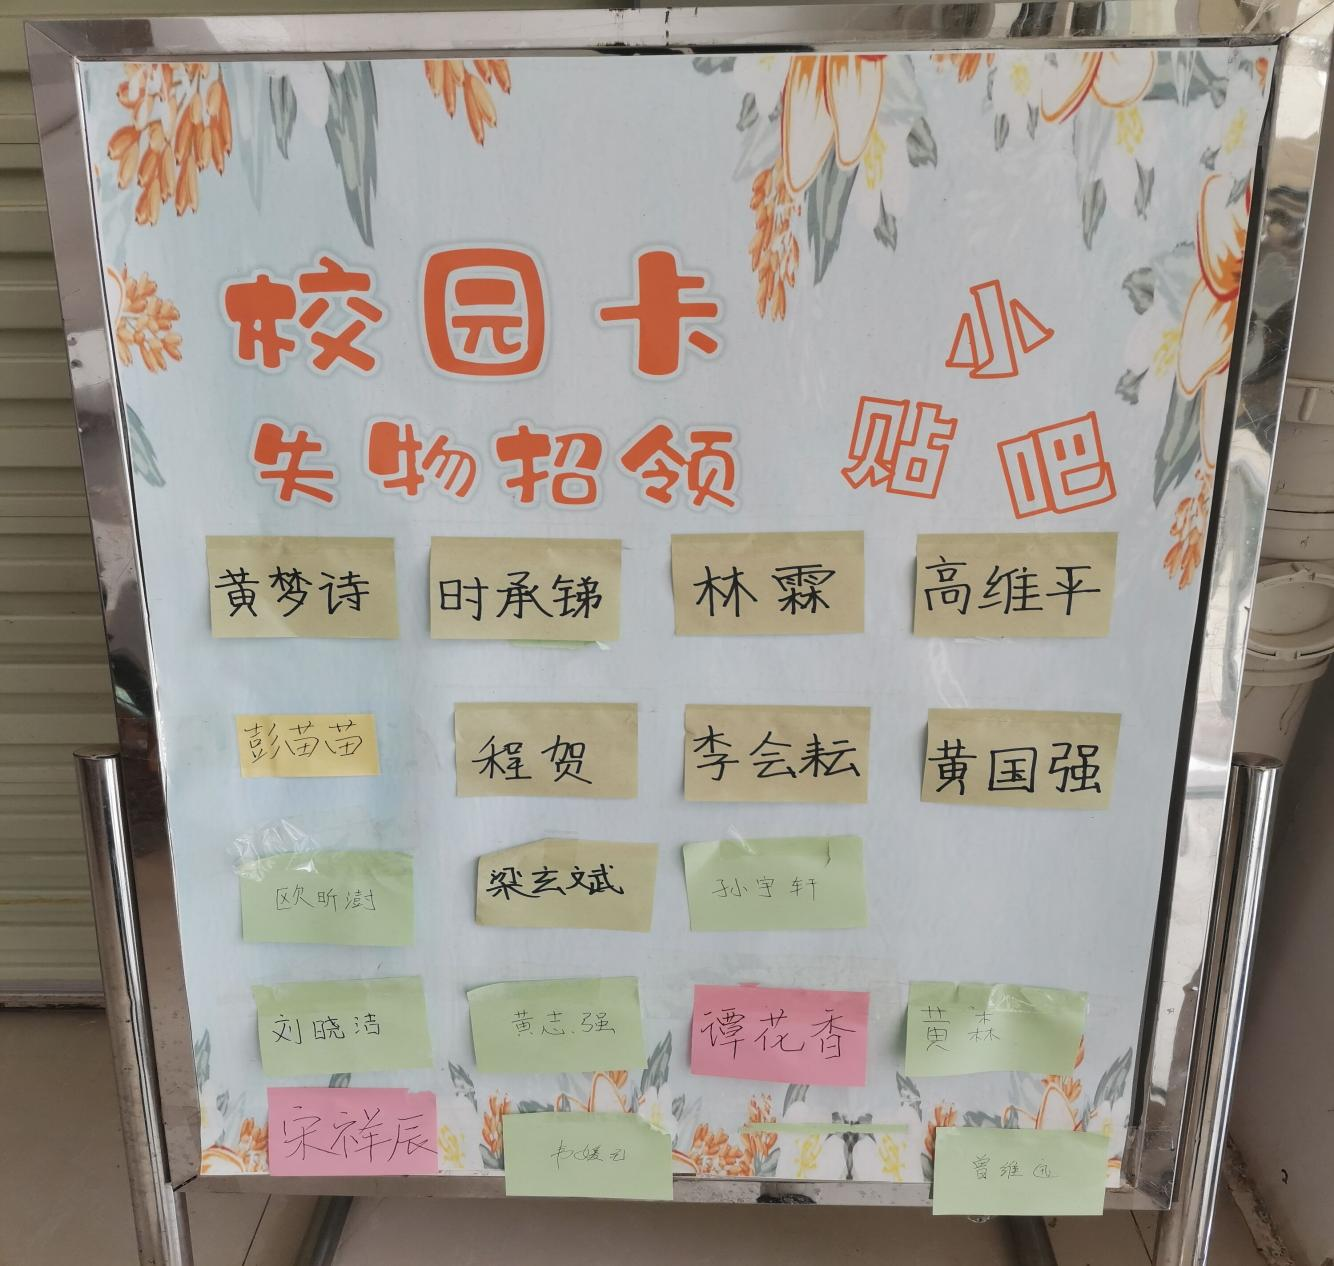 校园卡
失物招领
小贴吧
黄梦诗 时承锑 林霖 高维平
彭苗苗 程贺 李会耘 黄国强
欧昕澍 梁玄斌 孙宇轩
刘晓洁 黄志强 谭花香 黄森
宋祥辰 韦媛元 曾维